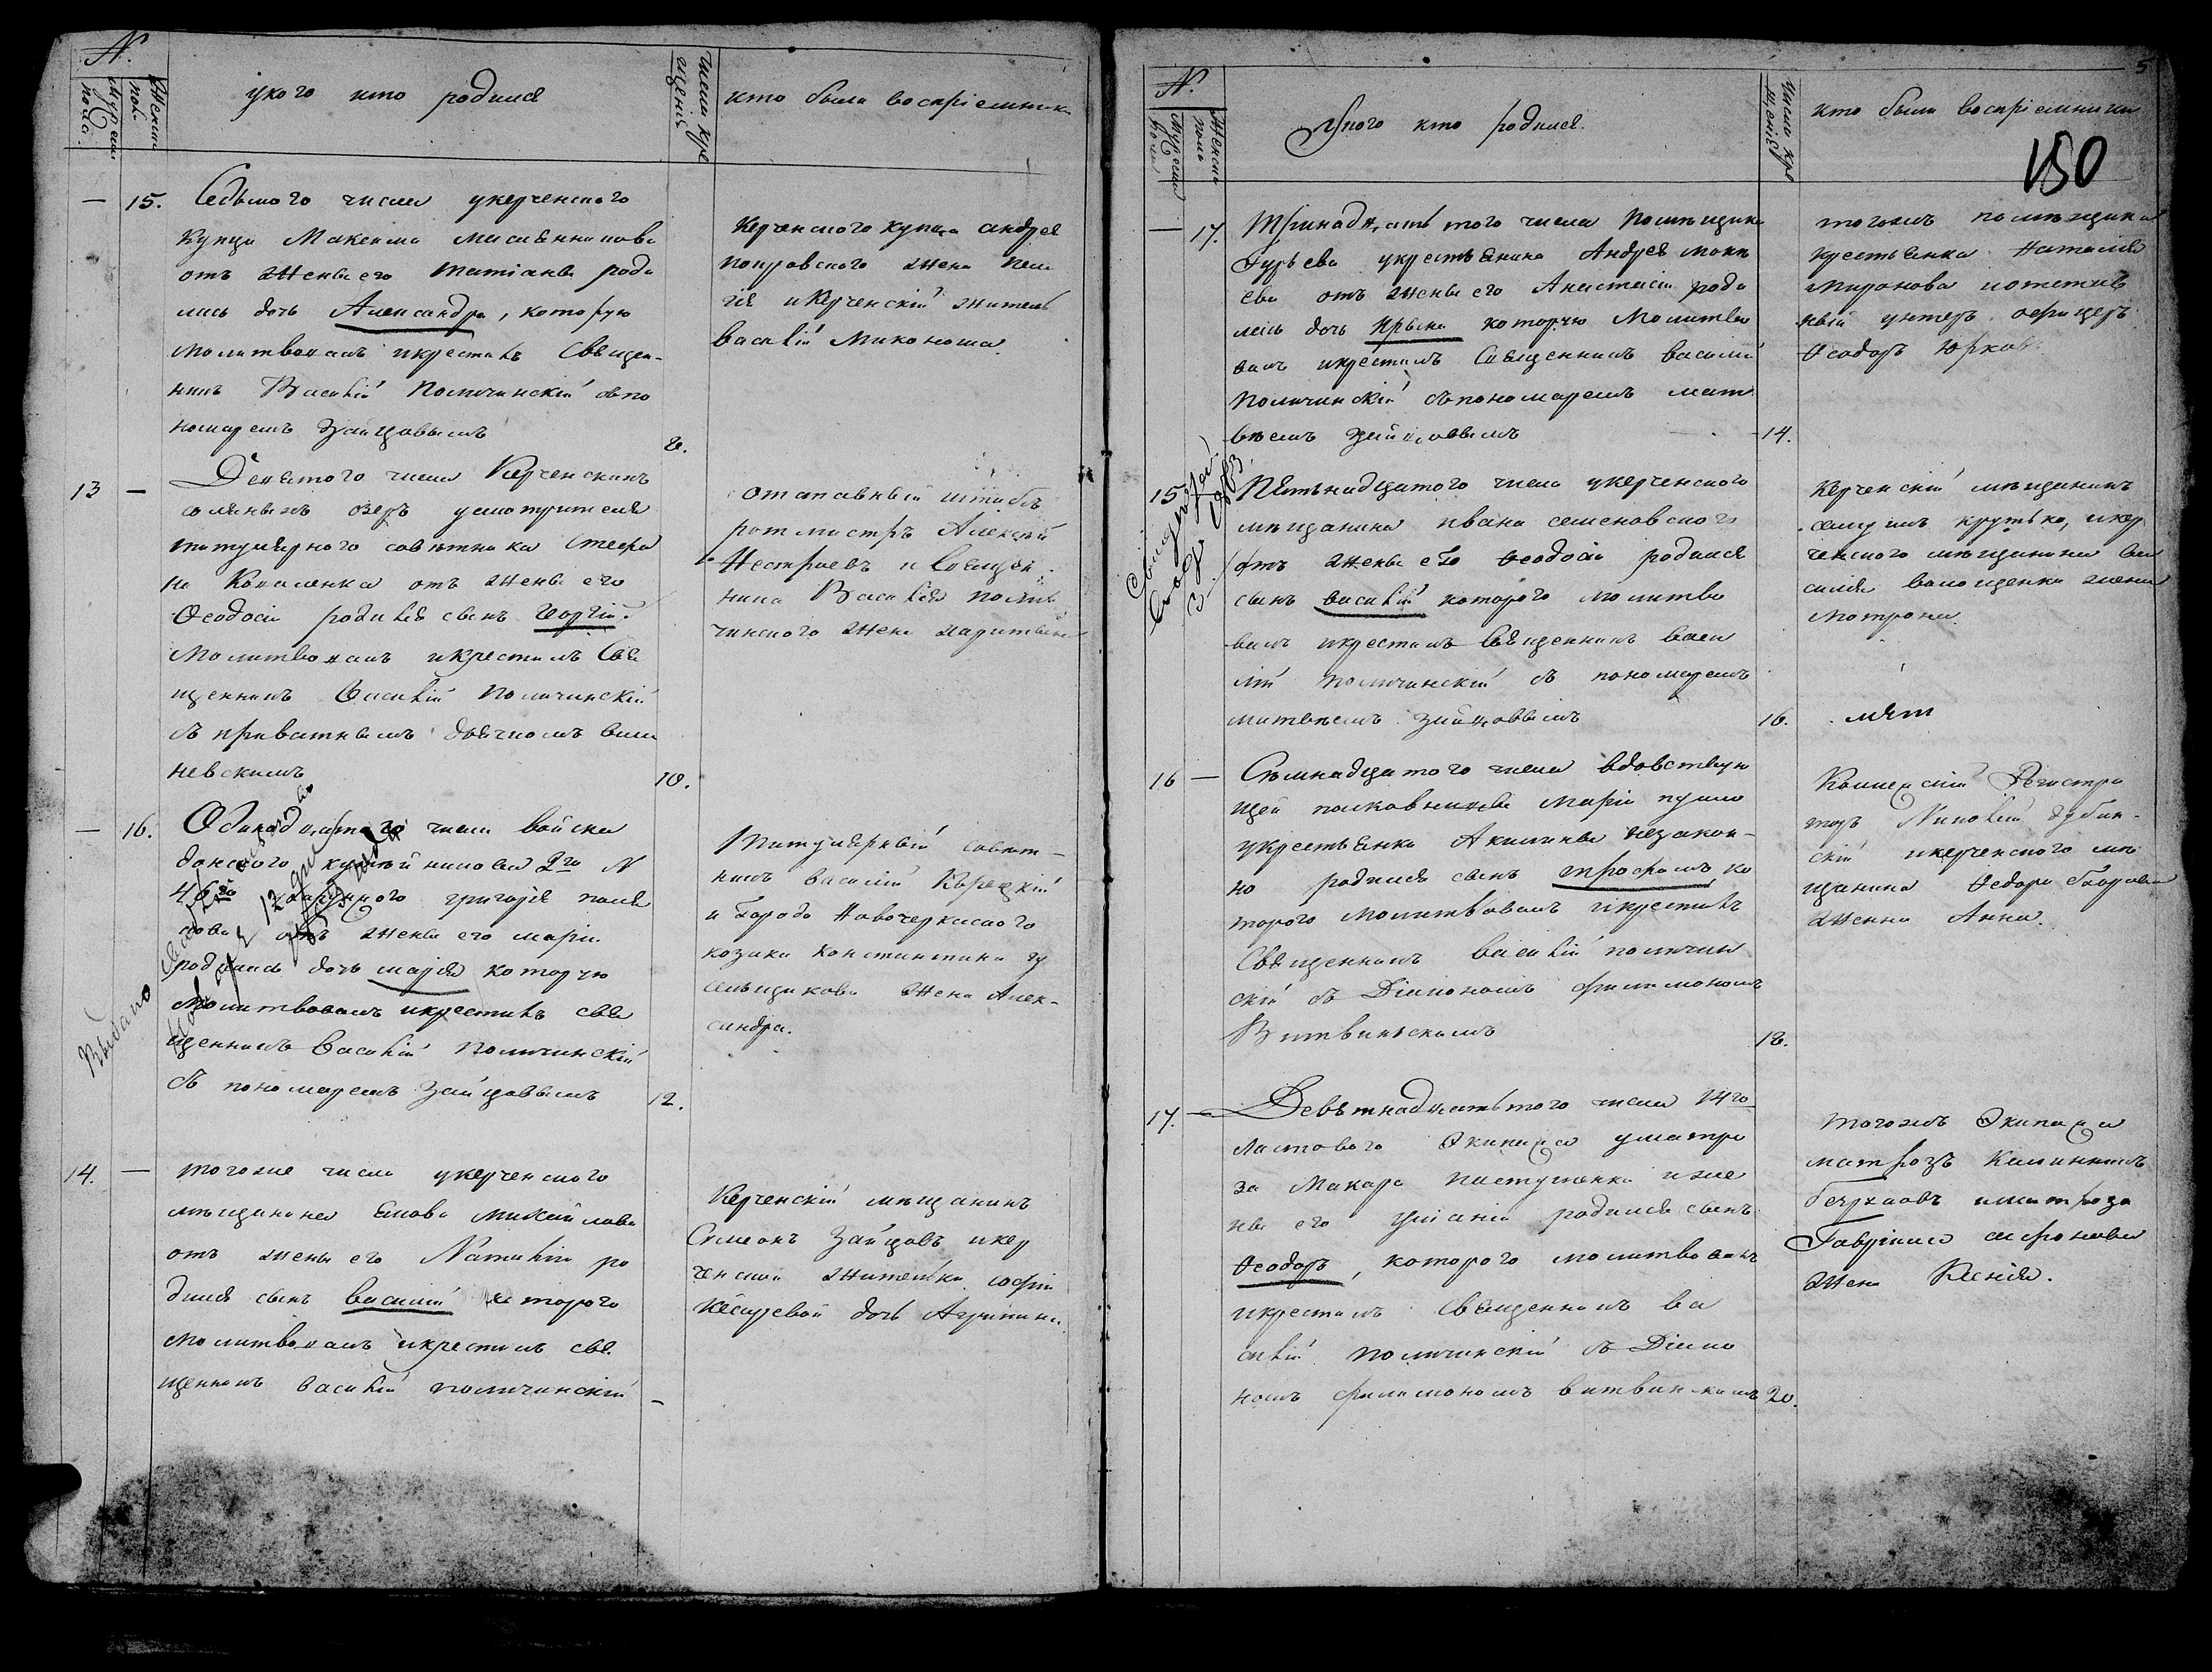 N.
Мужеска пола.
Женска пол.
укого кто родился
числа крещенія
кто были воспріемник
— 15. Седьмого числа укерченского
купца Максима Масленникова
отъ жены его Татіаны роди
лась дочь Александра, которую
молитвовалъ икрестилъ Священ-
никъ Василій Поличинскій съпо
номаремъ Зайцовымъ
8.
Керченского купца андрея
Покровского жена Пела
гія иКерченскій житель
василій Миконоша
13 — Девятого числа Керченскихъ
соляныхъ озеръ усмотрителя
титулярного совѣтника Стефа
на Коваленка отъ жены его
Ѳеодосіи родился сынъ Георгій.
Молитвовалъ икрестилъ Свя
щенникъ Василій Поличинскій
съ приватнымъ дьячкомъ виш
невскимъ
10.
отставный штабъ
ротмистръ Алексей
Нестроевъ и Священ-
ника Василія поли
чинского жена харитина
— 16. Одинадцатого числа войска
донского 2го N
46го григорія
отъ жены его маріи
родилась дочь марія которую
молитвовалъ икрестилъ свя
щенникъ Василій Поличинскій
съ пономаремъ Зайцовымъ
12.
Выдано
Титулярный совѣт-
никъ василій Корецкій
и города Новочеркаского
козака константина гу
сельщикова жена Алек-
сандра.
14. — тогоже числа укерченского
мѣщанина Якова Михайлова
отъ жены его Наталіи ро
дился сынъ василій которого
молитвовалъ икрестилъ свя
щенникъ василій поличинскій
—
Керченскій мѣщанинъ
Симеонъ Зайцовъ икер
ченской жительки софіи
Кесаревой дочь Агрипина
5
150
N.
Мужеска пола
Женска пола
Укого кто родился
число крещенія
кто были воспріемники
— 17. Тринадцатьтого числа помѣщика
Гурьева укрестьянина Андрея моки
ева отъ жены его Анастасіи роди
лась дочь Ирина которую молитво
валъ икрестилъ Священникъ василій
Поличинскій съпономаремъ мат
вѣемъ зайцовымъ
14.
тогожъ помѣщика
крестьянка Наталія
Миронова иотстав
ный унтеръ офицеръ
Ѳеодоръ Юрков
15 Пятьнадцатого числа укерченского
мѣщанина ивана семеновского
отъ жены его Ѳеодосіи родился
сынъ василій которого молитво
валъ икрестилъ Священникъ васи
лій поличинскій съ пономаремъ
матвѣемъ зайцовымъ
16.
Керченскій мѣщанинъ
самуилъ крутько, икер
ченского мѣщанина ва
силія волощенка жена
мотрона.
16 — Семнадцатого числа вдовствую
щей полковницы Маріи
укрестьянки Акилины незакон-
но родился сынъ трофимъ, ко
торого молитвовалъ икрестилъ
Священникъ василій поличин
скій съ Діакономъ филимономъ
Витвинскимъ
18.
Колежскій Регистра
торъ Николай дубин-
скій икерченского мѣ
щанина Ѳедора
жена Анна.
17. — Девятнадцатьтого числа 14го
ластового Экипажа уматро
за Макара Пастушенка изже
ны его Уліаніи родился сынъ
Ѳеодоръ, которого молитвовалъ
икрестилъ Священникъ ва
силій поличинскій съ Діако
номъ филимономъ витвинскимъ 20.
Тогожъ Экипажа
матрозъ
иматроза
Гавріила
жена Ксенія.